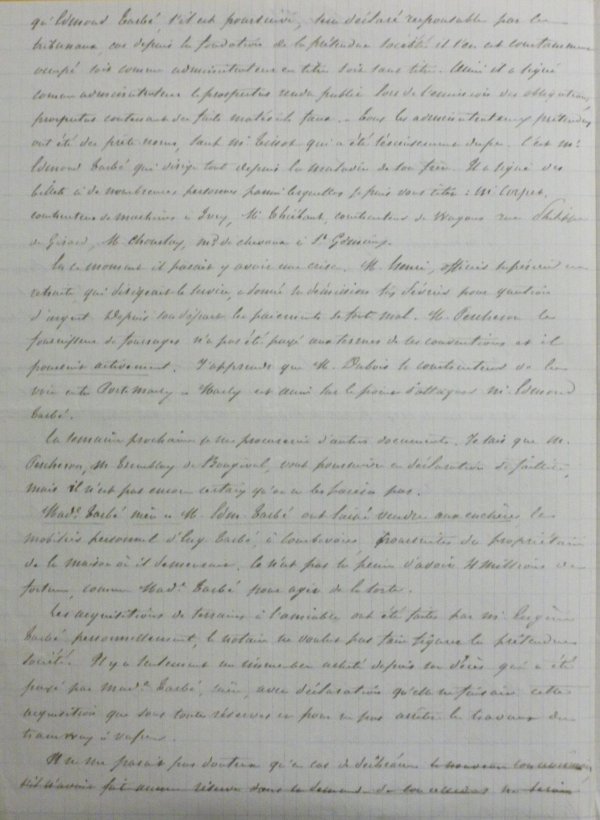 qu'Edmond Tarbé s'il est poursuivi, sera déclaré responsable par les
tribunaux car depuis la fondation de la prétendue société il s'en est constamment
occupé soit comme administrateur en titre soit sans titre. Ainsi il a signé
comme administrateur le prospectus rendu public lors de l'émission des obligations,
prospectus contenant des faits matériels faux. Tous les administrateurs prétendus
ont été des prête-noms, sauf Mr Tissot qui a été dupé. C'est Mr
Edmond Tarbé qui dirige tout depuis la maladie de son frère. Il a signé des
billets à de nombreuses personnes parmi lesquelles je puis vous citer : Mr Corpet,
constructeur de machines à Ivry, Mr Thiébaut, constructeur de Wagons rue Philippe
de Girard, M. Choulay, md de chevaux à St Germain.
En ce moment il paraît y avoir une crise. M. Henri, officier supérieur en
retraite qui dirigeait le service, a donné sa démission fin février pour question
d'argent. Depuis son départ les paiements se font mal. M. Percheron le
fournisseur de fourrages n'a pas été payé aux termes de ses conventions et il
poursuit activement. J'apprends que M. Dubois le constructeur de la
voie entre Port Marly et Marly est aussi sur le point d'attaquer Mr Edmond
Tarbé.
La semaine prochaine je me procurerai d'autres documents. Je sais que M.
Percheron, M. Tremblay de Bougival, vont poursuivre en déclaration de faillite,
mais il n'est pas encore certain qu'on ne les paiera pas.
Made Tarbé mère et M. Edm. Tarbé ont laissé vendre aux enchères le
mobilier personnel d'Eug. Tarbé, à Courbevoie, poursuites du propriétaire
de la maison où il demeurait. Ce n'est pas la peine d'avoir 4 millions de
fortune, comme Made Tarbé pour agir de la sorte.
Les acquisitions de terrains à l'amiable ont été faites par Mr Eugène
Tarbé personnellement, le notaire ne voulut pas faire figurer la prétendue
société. Il y a seulement un immeuble acheté depuis son décès qui a été
payé par Made Tarbé, mère, avec déclaration qu'elle ne faisait cette
acquisition que sous toutes réserves et pour ne pas arrêter les travaux du
tramway à vapeur.
Il ne me paraît pas douteux qu'en cas de déchéance le nouveau concessionnaire
s'il n'avait fait aucune réserve dans la demande de concession ne serait